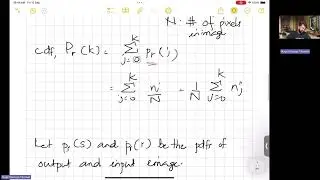 N: # of pixels
in image
cdf, Pr(k) = K∑j=0 pr(j)
= K∑j=0 nj/N = 1/N K∑j=0 nj
Let ps(s) and pr(r) be the pdfs of
output and input image.